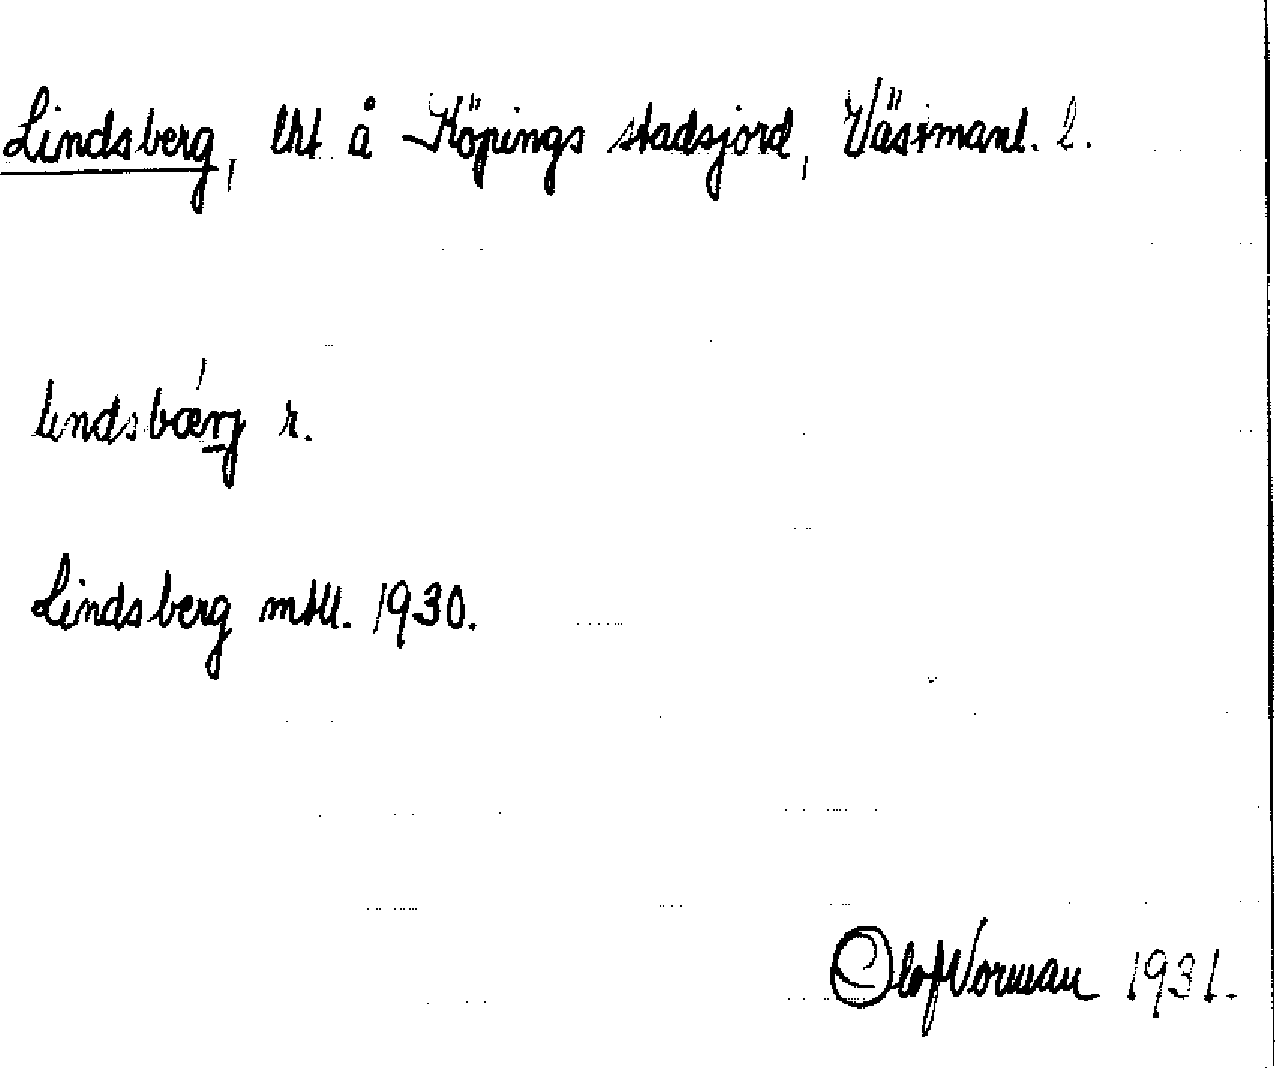 Lindsberg, lht å Köpings stadsjord, Västmanl. l.
lindsbærj r.
Lindsberg mtll. 1930.
Olof Norman 1931.